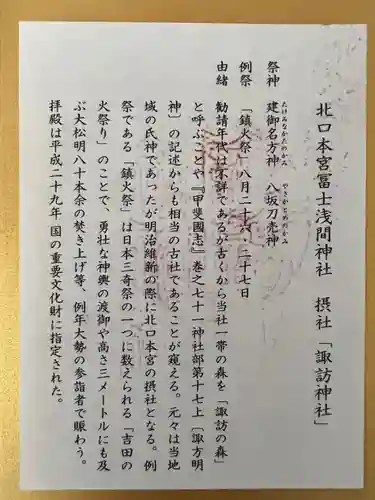 北口本宮冨士浅間神社　摂社「諏訪神社」
祭神　建御名方神　八坂刀売神
たけみなかたのかみ　やさかとめのかみ
例祭　「鎮火祭」八月二十六・二十七日
由緒　勧請年代は不詳であるが古くから当社一帯の森を「諏訪の森」
と呼ぶことや『甲斐國志』巻之七十一神社部第十七上［諏方明
神］の記述からも相当の古社であることが窺える。元々は当地
域の氏神であったが明治維新の際に北口本宮の摂社となる。例
祭である「鎮火祭」は日本三奇祭の一つに数えられる「吉田の
火祭り」のことで、勇壮な神輿の渡御や高さ三メートルにも及
ぶ大松明八十本余の焚き上げ等、例年大勢の参詣者で賑わう。
拝殿は平成二十九年 国の重要文化財に指定された。